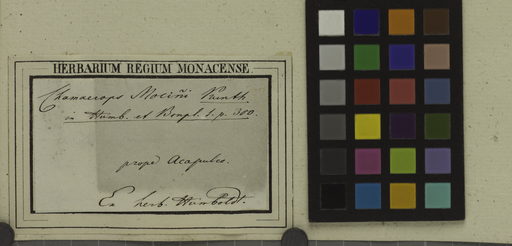 HERBARIUM REGIUM MONACENSE
Chamaerops Mociñi Kunth.
in Humb. et Bonpl. 1. p. 300.
prope Acapulco.
Ex herb. Humboldt.